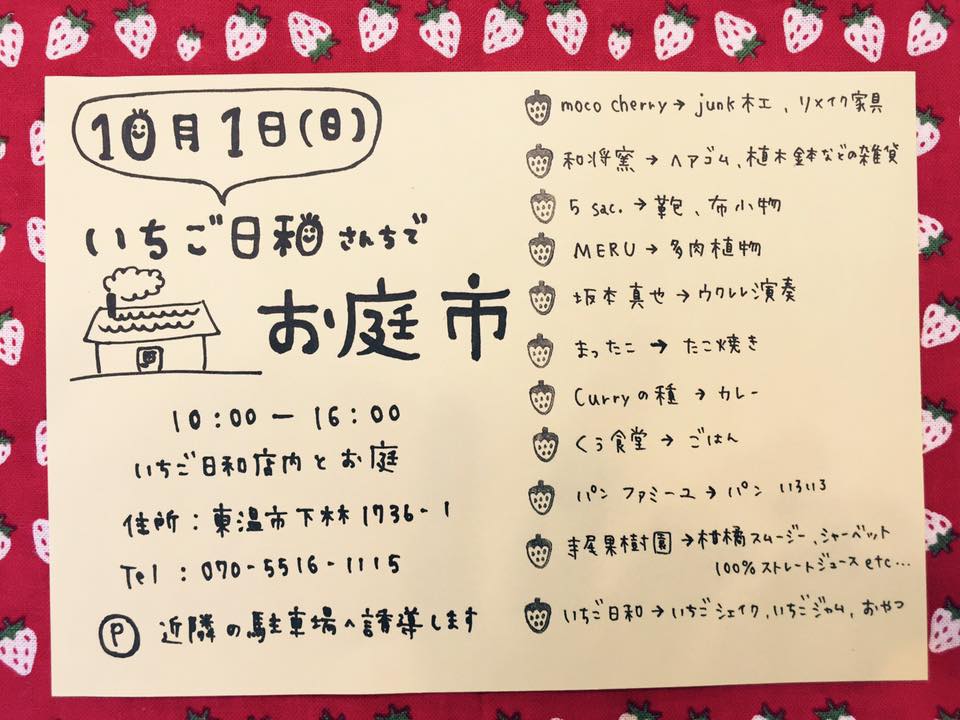 10月1日(日)
いちご日和さんちで
お庭市
10:00 ー 16:00
いちご日和店内とお庭
住所：東温市下林1736-1
Tel：070-5516-1115
Ⓟ 近隣の駐車場へ誘導します
moco cherry→junk木工、リメイク家具
和将窯→ヘアゴム、植木鉢などの雑貨
5 sac.→鞄、布小物
MERU→多肉植物
坂本真也→ウクレレ演奏
まったこ→たこ焼き
Curryの種→カレー
くう食堂→ごはん
パン ファミーユ→パン いろいろ
寺尾果樹園→柑橘スムージー、シャーベット
100%ストレートジュース etc...
いちご日和→いちごシェイク、いちごジャム、おやつ